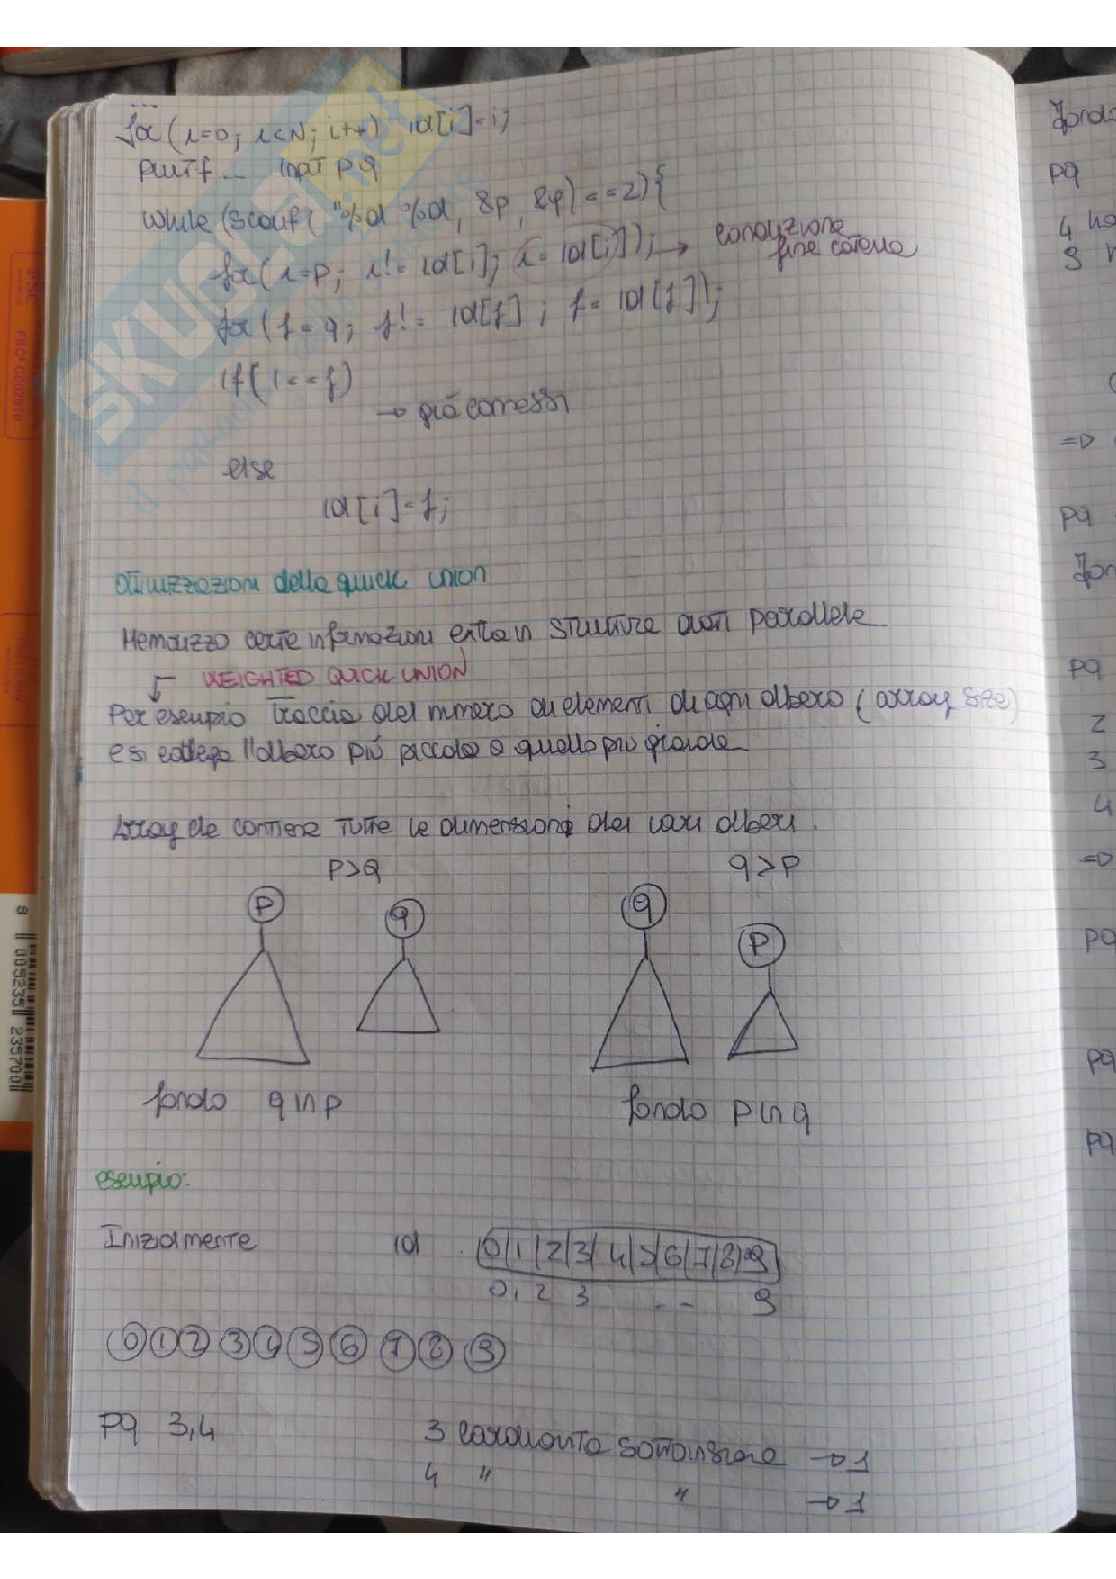 ...
for(i=0; i<N; i++) id[i]=i;
printf... input p q
while (scanf( "%d %d, &p, &q)==2){
for(i=p; i!= id[i]; i= id[i]); → condizione
fine catena
for(j=q; j!= id[j]; j= id[j]);
if( i==j)
→ già connessi
else
id[i]=j;
ottimizzazioni della quick union
Memorizzo certe informazioni extra in strutture dati parallele
WEIGHTED QUICK UNION
Per esempio traccia del numero di elementi di ogni albero (array size)
e si collega l'albero più piccolo a quello più grande
Array che contiene tutte le dimensioni dei vari alberi.
p>q
q>p
p
q
q
p
fondo q in p
fondo p in q
esempio:
Inizialmente id 0|1|2|3|4|5|6|7|8|9
0 1 2 3 .. 9
0 1 2 3 4 5 6 7 8 9
pq 3,4 3 cardinalità sottoinsieme → 1
4 " " → 1
Fondo
pq
4
9
=D
pq
Fon
pq
2
3
4
=D
pq
pq
pq
SKUOLA.net
8 005235 235700